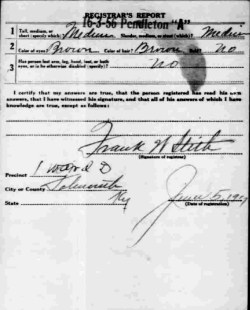 REGISTRAR'S REPORT
16-3-56 Pendleton "A"
1 Tall, medium, or short (specify which)? Medium Slender, medium, or stout (which)? Medium
2 Color of eyes? Brown Color of hair? Brown Bald? No
3 Has person lost arm, leg, hand, foot, or both eyes, or is he otherwise disabled (specify)? No
I certify that my answers are true, that the person registered has read his own answers, that I have witnessed his signature, and that all of his answers of which I have knowledge are true, except as follows:
Frank W Stith
(Signature of registrar)
Precinct 1 ward D
City or County Falmouth
State Ky
June 5, 1917
(Date of registration)